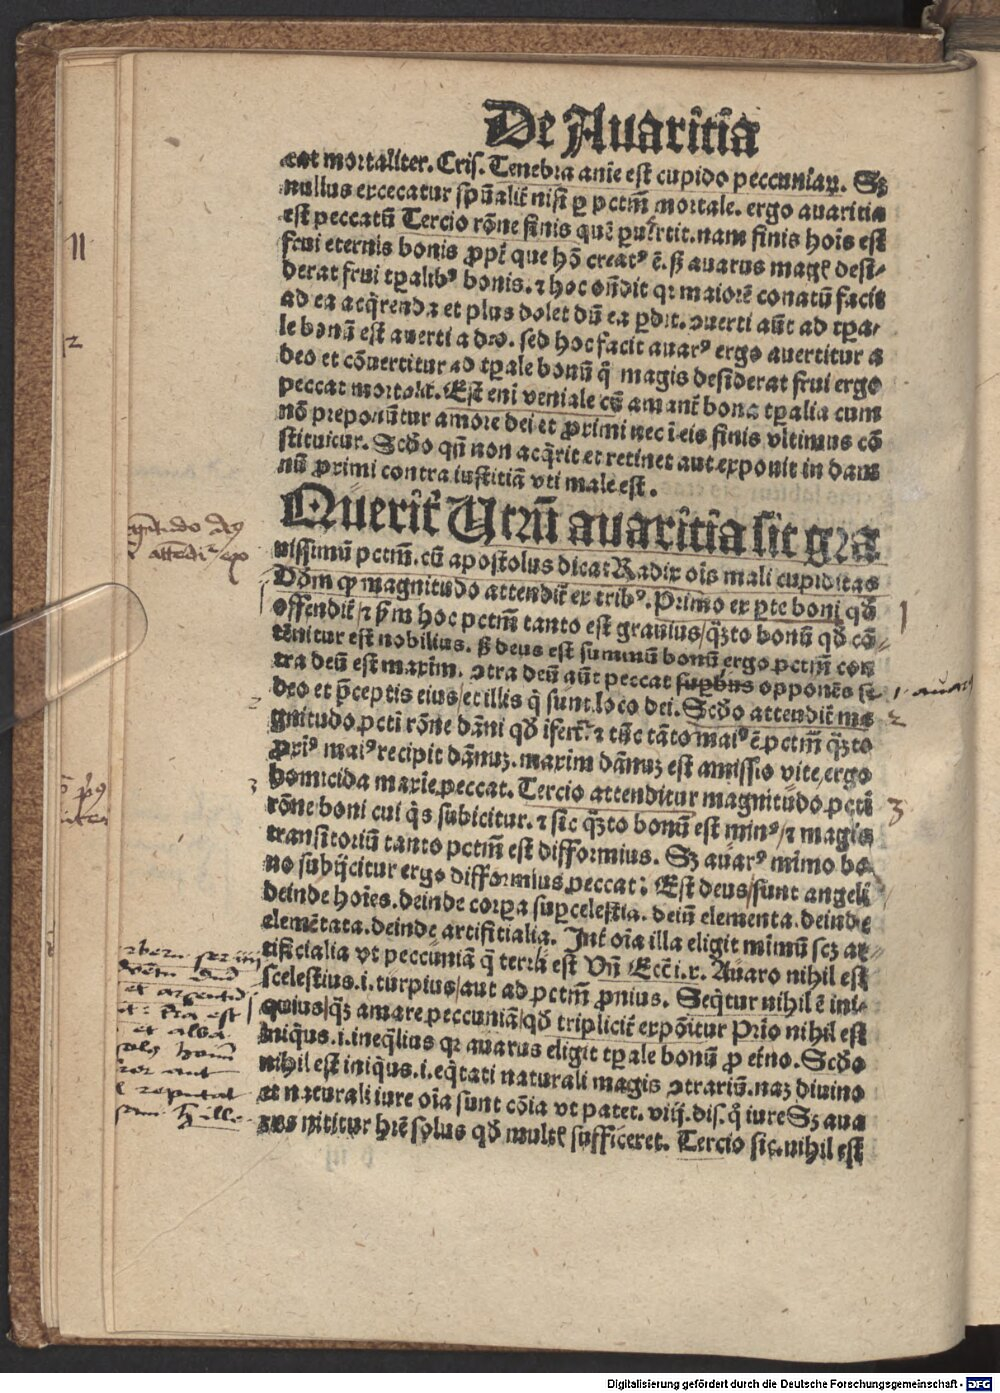 De Auaritia
cat mortaliter. Cris. Tenebra anīe est cupido peccuniaꝝ. Sꝫ
nullus excecatur spūalit̄ nisi ꝑ pctm̄ mortale. ergo auaritia
est peccatū Tercio rōne finis quē ꝑuertit. nam finis hoīs est
frui eternis bonis ꝓpt̄ que hō creatꝰ ē. ß auarus magꝭ desi-
derat frui tꝑalibꝰ bonis. ⁊ hoc oñdit qꝛ maiorē conatū facit
ad ea acq̄renda et plus dolet dū ea ꝑdit. ꝯuerti aūt ad tꝑa-
le bonū est auerti a deo. sed hoc facit auarꝰ ergo auertitur a
deo et cōuertitur ad tꝑale bonū q̄ magis desiderat frui ergo
peccat mortalit̄. Est eni veniale cū amant̄ bona tꝑalia cum
nō preponūtur amore dei et ꝓximi nec ī eis finis vltimus cō
stituitur. Scd̄o qn̄ non acq̄rit et retinet aut exponit in dam
nū ꝓximi contra iustitiā vti male est.
Querit̄ Utrū auaritia sit gra
uissimū pctm̄. cū apostolus dicat Radix oīs mali cupiditas
Dōm ꝙ magnitudo attendit̄ ex tribꝰ. Primo ex ꝑte boni qd̄
offendit̄ / ⁊ ẜm hoc pctm̄ tanto est grauius / q̄ꝫto bonū qd̄ cō-
tēnitur est nobilius. ß deus est summū bonū ergo pctm̄ con
tra deū est maxim̄. ꝯtra deū aūt peccat suꝑbus opponēs se
deo et p̄ceptis eius / et illis q̄ sunt loco dei. Scd̄o attendit̄ ma
gnitudo pcti rōne dāni qd̄ ifert̄. ⁊ tūc tāto maiꝰ ē pctm̄ q̄ꝫto
ꝓxiꝰ maiꝰ recipit dānuꝫ. maxim̄ dānuꝫ est amissio vite / ergo
homicida maxīe peccat. Tercio attenditur magnitudo pcti
rōne boni cui q̄s subicitur. ⁊ sic q̄ꝫto bonū est minꝰ / ⁊ magis
transitoriū tanto pctm̄ est difformius. Sꝫ auarꝰ mīmo bo
no subijcitur ergo difformius peccat: Est deus / sunt angeli
deinde hoīes. deinde corꝑa suꝑcelestia. dein̄ elementa. deinde
elemētata. deinde artifitialia. Int̄ oīa illa eligit mīmū scꝫ ar-
tificialia vt peccuniā q̄ terra est Vn̄ Ecc̄i. x. Auaro nihil est
scelestius. i. turpius / aut ad pctm̄ ꝓnius. Seq̄tur nihil ē ini-
quius / q̄ꝫ amare peccuniā / qd̄ triplicit̄ expōitur Prīo nihil est
iniq̄us. i. ineq̄lius qꝛ auarus eligit tꝑale bonū ꝓ et̄no. Scd̄o
nihil est iniq̄us. i. eq̄tati naturali magis ꝯtrariū. naꝫ diuino
et naturali iure oīa sunt cōia vt patet. viij. dis. q̄ iure Sꝫ aua
rus nititur hr̄e solus qd̄ multꝭ sufficeret. Tercio sic. nihil est
1
2
3
Digitalisierung gefördert durch die Deutsche Forschungsgemeinschaft - DFG